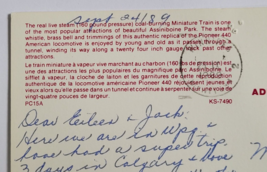 Sept 24/89
The real live steam (160 pound pressure) coal-burning Miniature Train is one
of the most popular attractions of beautiful Assiniboine Park. The steam
whistle, brass bell and trimmings of this authentic replica of the Pioneer 4-40
American locomotive is enjoyed by young and old as it passes through a
tunnel, winding its way along a twenty four inch gauge track past other
attractions.
Le train miniature à vapeur vive marchant au charbon (160 lbs de pression) est
une des attractions les plus populaires du magnifique parc Assiniboine.
sifflet à vapeur, la cloche de laiton et les garnitures de cette
authentique de la locomotive américaine Pioneer 440 réjouissent jeunes et
vieux alors qu'elle passe dans un tunnel et continue à serpenter sur une voie de
vingt-quatre pouces de largeur.
PC15A
KS-7490
AD
Dear Eileen & Jack:
Here we are in Wpg &
have had a super trip.
3 days in Calgary &